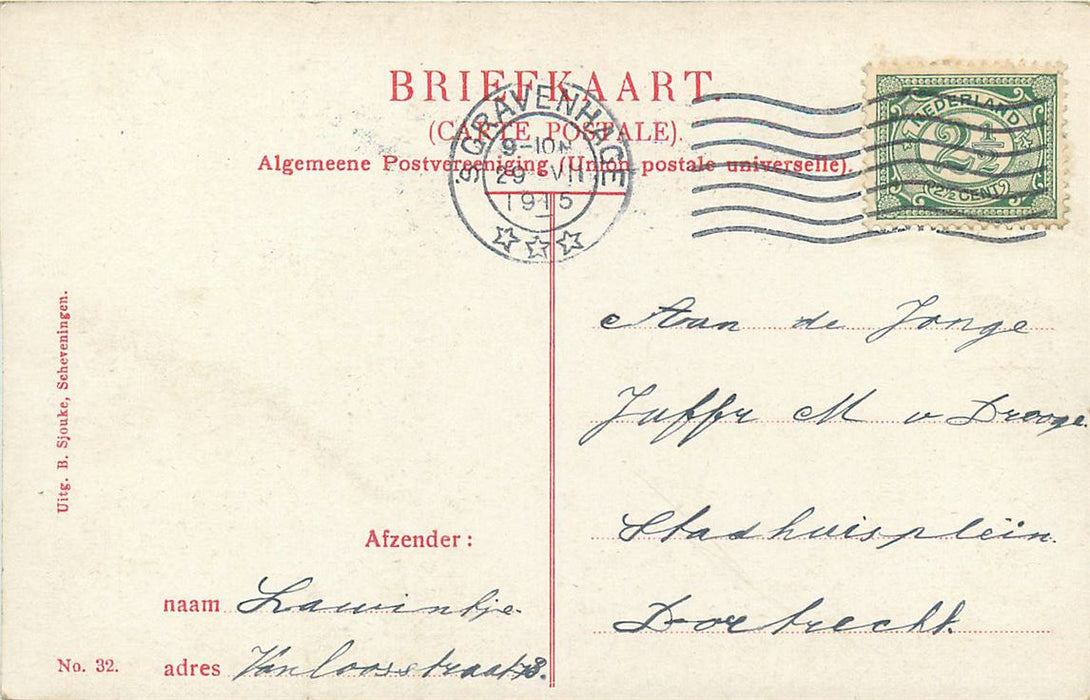 BRIEFKAART.
(CARTE POSTALE).
Algemeene Postvereeniging (Union postale universelle).
'S GRAVENHAGE
9-10N
29 VII
1915
NEDERLAND
2½
2½ CENT
Aan de Jonge
Juffr M v Drooge
Stadhuisplein.
Dortrecht.
Uitg. B. Sjouke, Scheveningen.
Afzender:
naam Lauwintje.
No. 32.
adres Van Loosstraat